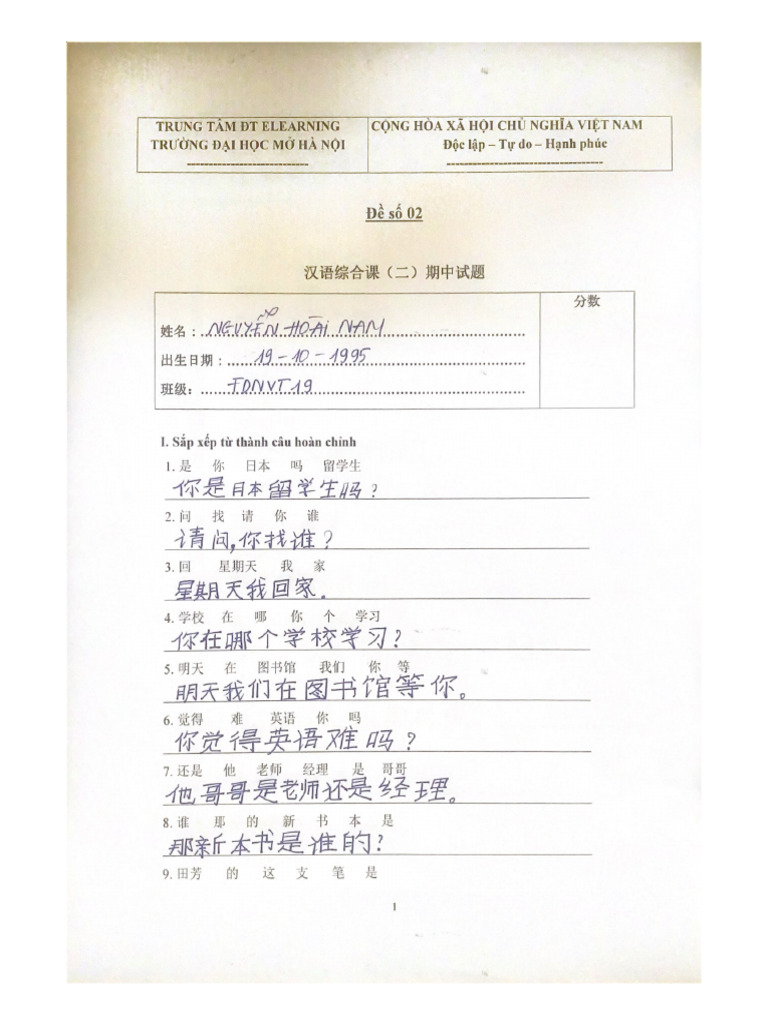 TRUNG TÂM ĐT ELEARNING
TRƯỜNG ĐẠI HỌC MỞ HÀ NỘI
CỘNG HÒA XÃ HỘI CHỦ NGHĨA VIỆT NAM
Độc lập – Tự do – Hạnh phúc
Đề số 02
汉语综合课（二）期中试题
姓名：NGUYỄN HOÀI NAM
出生日期：19-10-1995
班级：TDNVT19
分数
I. Sắp xếp từ thành câu hoàn chỉnh
1. 是 你 日本 吗 留学生
你是日本留学生吗？
2. 问 找 请 你 谁
请问,你找谁？
3. 回 星期天 我 家
星期天我回家.
4. 学校 在 哪 你 个 学习
你在哪个学校学习？
5. 明天 在 图书馆 我们 你 等
明天我们在图书馆等你。
6. 觉得 难 英语 你 吗
你觉得英语难吗？
7. 还是 他 老师 经理 是 哥哥
他哥哥是老师还是经理。
8. 谁 那 的 新 书 本 是
那新本书是谁的？
9. 田芳 的 这 支 笔 是
1